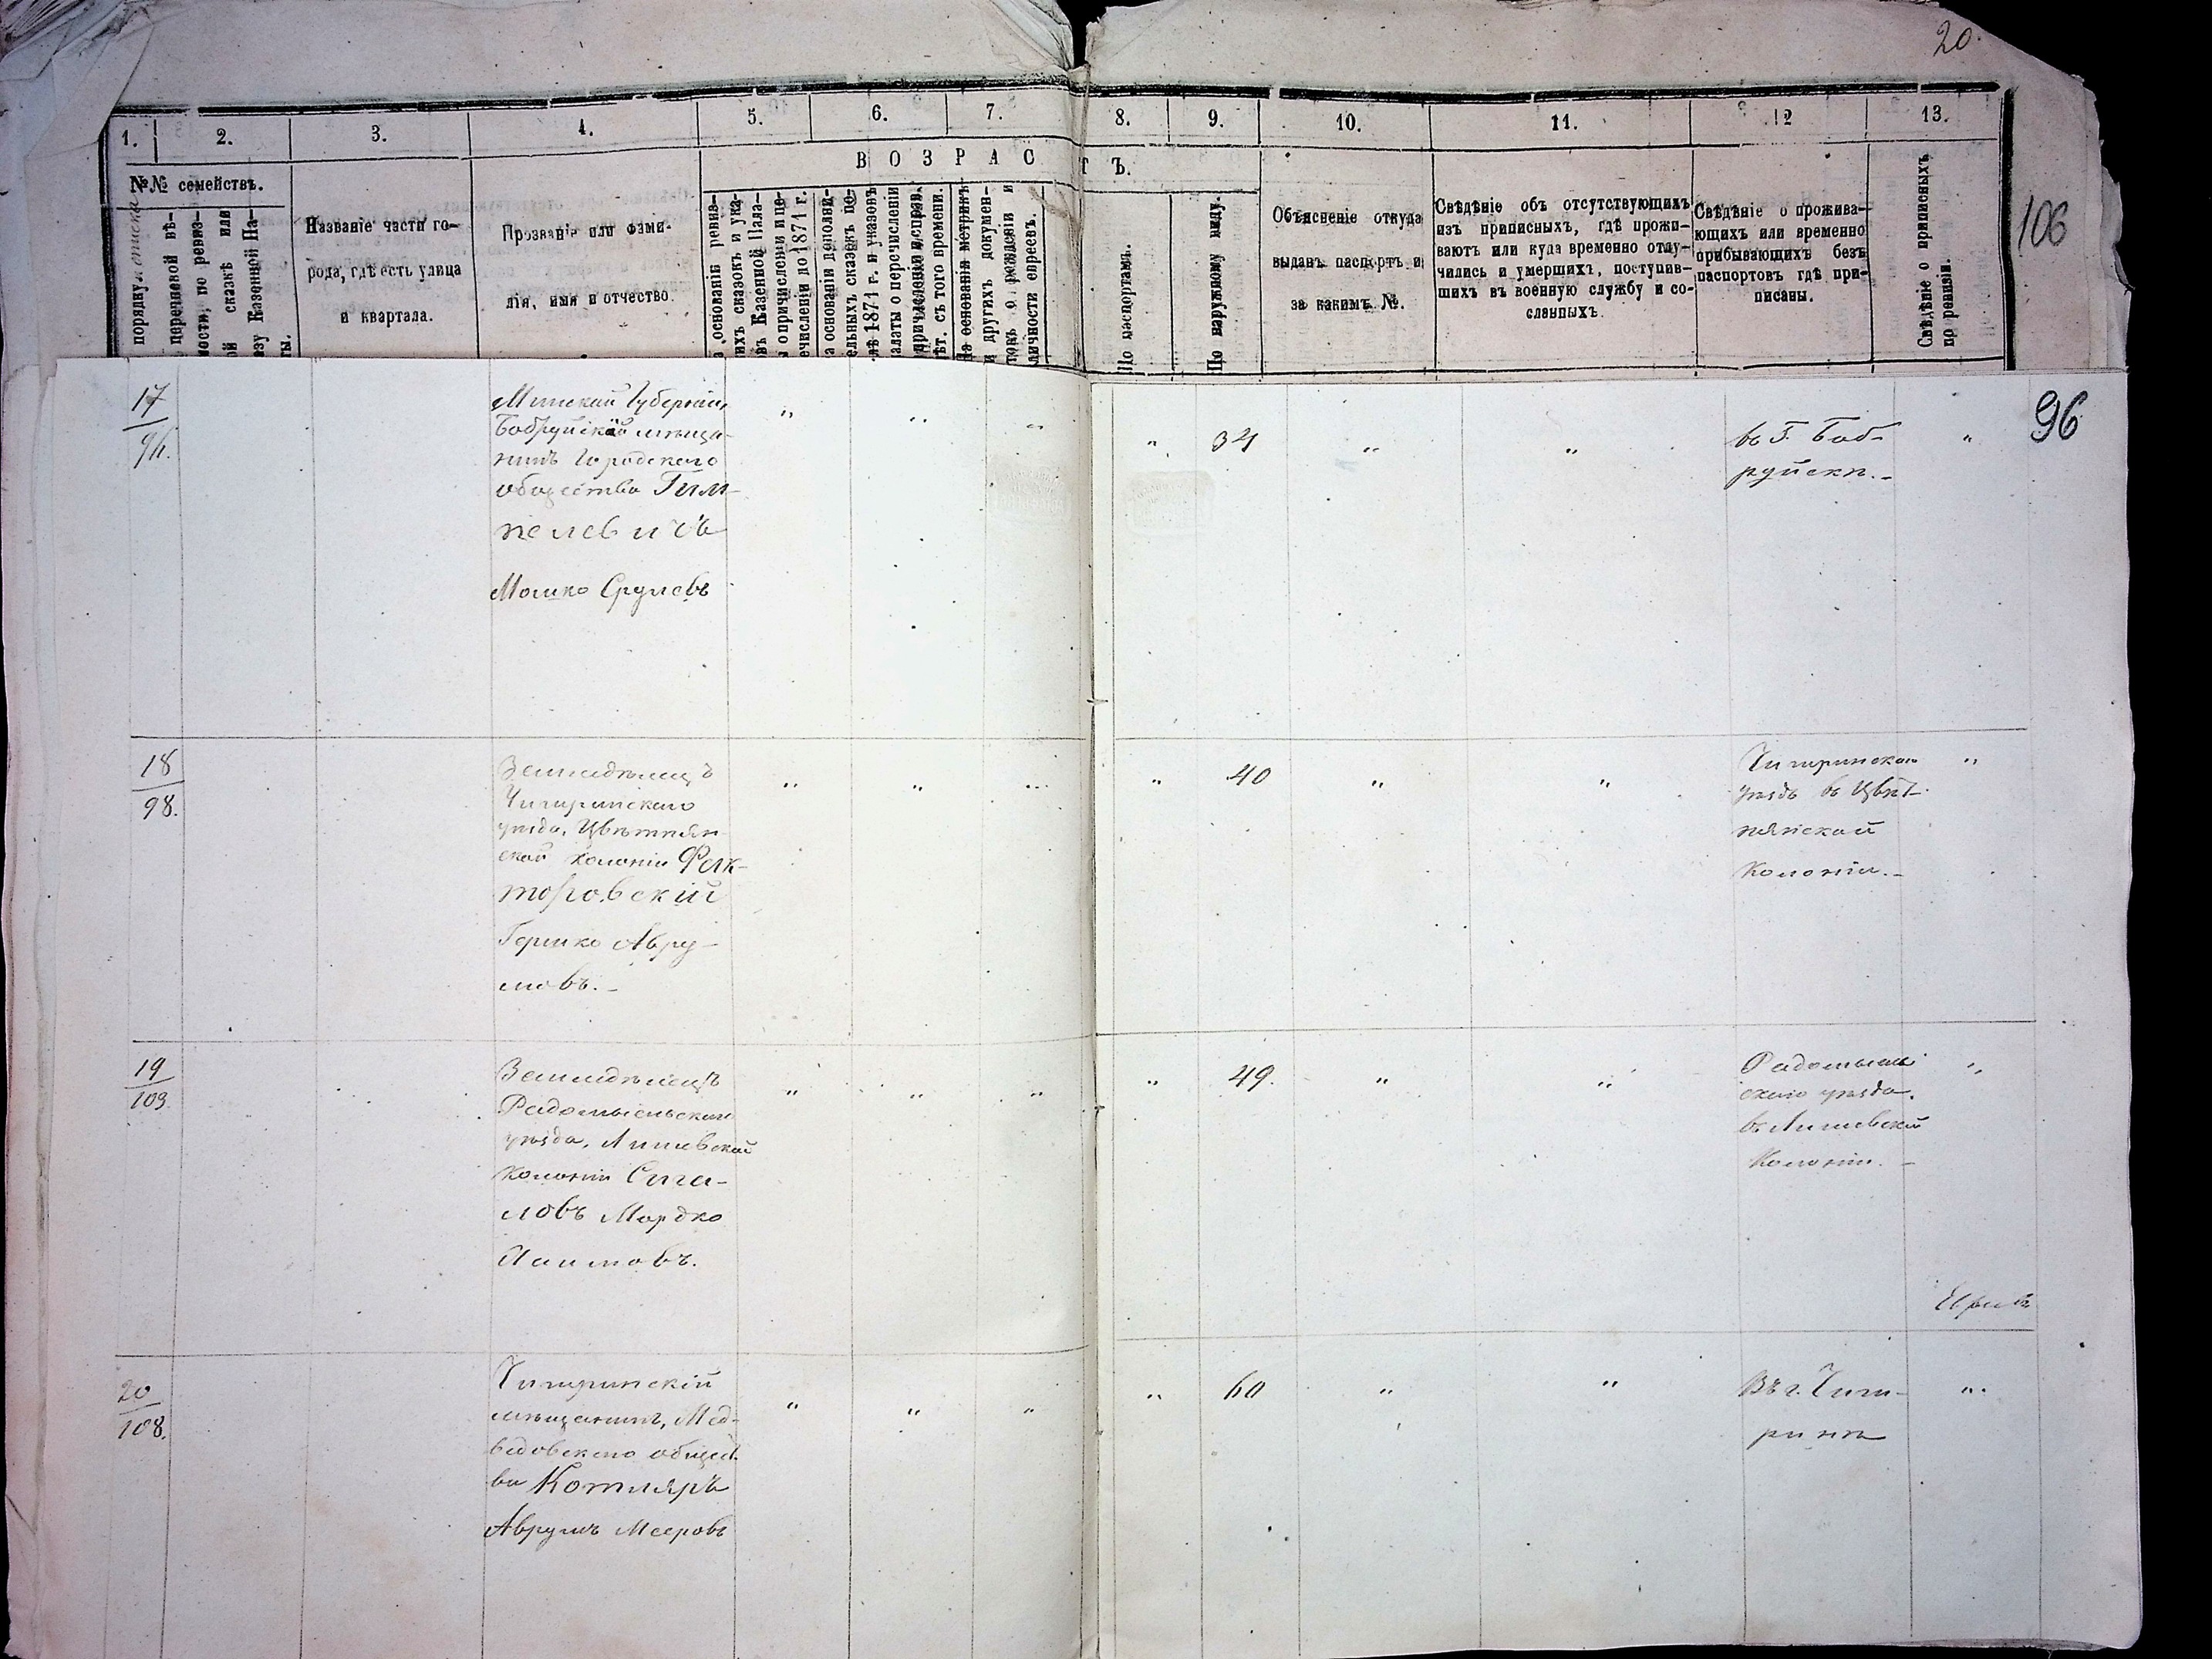 20.
1. 2. 3. 4. 5. 6. 7. 8. 9. 10. 11. 12 13.
В О З Р А С Т Ъ.
№№ семействъ.
порядку списка
перечневой вѣ-
мости, по ревиз-
ой сказкѣ или
азу Казенной Па-
ты.
Названіе части го-
рода, гдѣ есть улица
и квартала.
Прозваніе или фами-
лія, имя и отчество.
основаніи ревиз-
ихъ сказокъ и ука-
въ Казенной Пала-
ы о причисленіи и пе-
ечисленіи до 1871 г.
а основаніи дополни-
ельныхъ сказокъ по-
лѣ 1871 г. и указовъ
алаты о перечисленіи
причисленіи и справ.
ѣт. съ того времени.
На основаніи метрикъ
и другихъ докумен-
товъ о рожденіи и
личности евреевъ.
По паспортамъ.
По наружному виду.
Объясненіе откуда
выданъ паспортъ и
за какимъ №.
Свѣдѣніе объ отсутствующихъ
изъ приписныхъ, гдѣ прожи-
ваютъ или куда временно отлу-
чились и умершихъ, поступив-
шихъ въ военную службу и со-
сланныхъ.
Свѣдѣніе о прожива-
ющихъ или временно
прибывающихъ безъ
паспортовъ гдѣ при-
писаны.
Свѣдѣніе о приписныхъ
по ревизіи.
106
96
17
Минской Губерніи,
Бобруйскій мѣща-
нинъ Городскаго
общества Гим-
пелевичъ
Мошко Срулевъ
" " " " 34 " "
въ Г. Боб-
руйскѣ.-
"
18
98.
Земледѣлецъ
Чигиринскаго
уѣзда, Цвѣтнян
ской колоніи Фак-
торовскій
Гершко Авру-
мовъ.-
" " " " 40 " "
Чигиринскаго
уѣзда въ Цвѣт-
нянской
Колоніи.-
"
19
103.
Земледѣлецъ
Радомысльскаго
уѣзда,
колоніи Сига-
ловъ Мордко
" " " " 49. " "
скаго уѣзда.
Колоніи. -
"
20
108.
Чигиринскій
мѣщанинъ, Мед-
вѣдовскаго общест
ва Котляръ
Аврумъ Мееровъ
" " " " 60 " "
Въ г. Чиги-
ринѣ
"